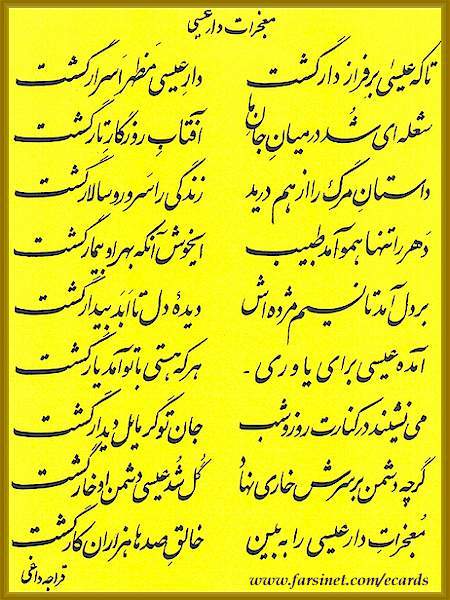 معجزات دار عیسی
تا که عیسیٰ بر فراز دار گشت دارِ عیسی مَنظرِ اَسرار گشت
شعله ای شُد در میانِ جانِ ما آفتابِ روزگارِ تار گشت
داستانِ مرگ را از هم درید زندگی را سَرور و سالار گشت
دَهر را تنها همو آمد طبیب ایخوش آنکه بهر او بیمار گشت
بر دل آمد تا نسیم مژده اش دیدهٔ دل تا اَبَد بیدار گشت
آمده عیسی برای یاوری . هر که هستی با تو آمد یار گشت
می نشیند در کنارت روز و شب جان تو گر مایل دیدار گشت
گرچه دشمن بر سرش خاری نهاد گُل شُد عیسی دشمن او خار گشت
مُعجزاتِ دار عیسی را به بین خالقِ صدها هزاران کار گشت
قراجه داغی
www.farsinet.com/ecards